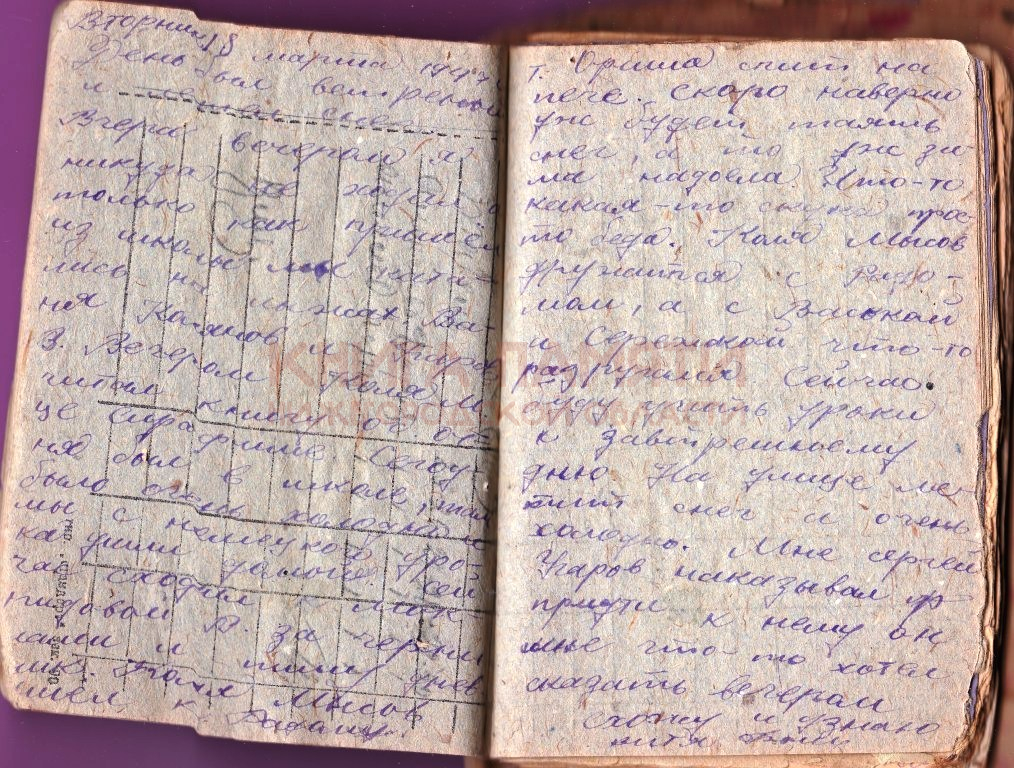 Вторник 18
марта 194
День был ветреный
и
Вчера вечером я
никуда не ходил а
только как пришёл
из школы мы ката-
лись на лыжах. Ва-
ня Казаков и
З. Вечером Коля М.
читал книгу об от-
це Серафиме Сегод-
ня был в школе, там
было очень холодно и
мы с немецкого уро-
ка ушли домой. Сей
час сходил к
В. за черни
лами и
мы. Коля Мысов
ушел к Радому.
т. Ориша спит на
пече. скоро наверно
уж будет таять
снег, а то уж зи-
ма надоела. Что-то
какая-то скука прос-
то беда. Коля Мысов
дружится с Радо-
мом, а с Васькой
и Сережкой что-то
раздружился Сейчас
буду учить уроки
к завтрешнему
дню. На улице ме-
тит снег и очень
холодно. Мне сергей
Угаров наказывал
придти к нему он
мне что то хотел
сказать вечером
схожу и узнаю
КНИГА ПАМЯТИ